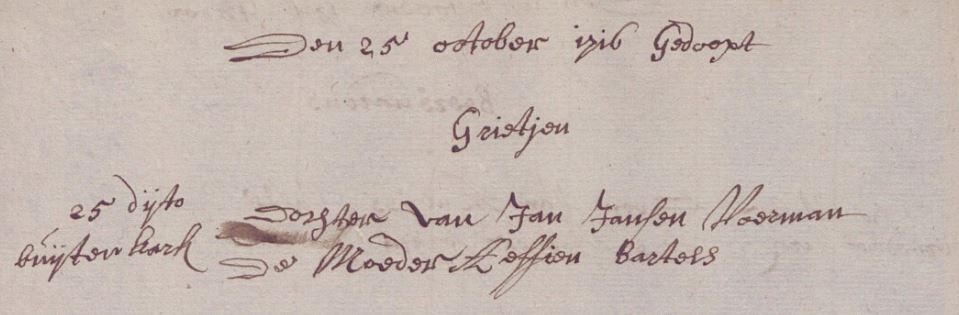 Den 25 october 1716 Gedoopt
Grietjen
25 dijto
buijten kark
Dochter van Jan Jansen Voerman
De Moeder Aeffien Bartels